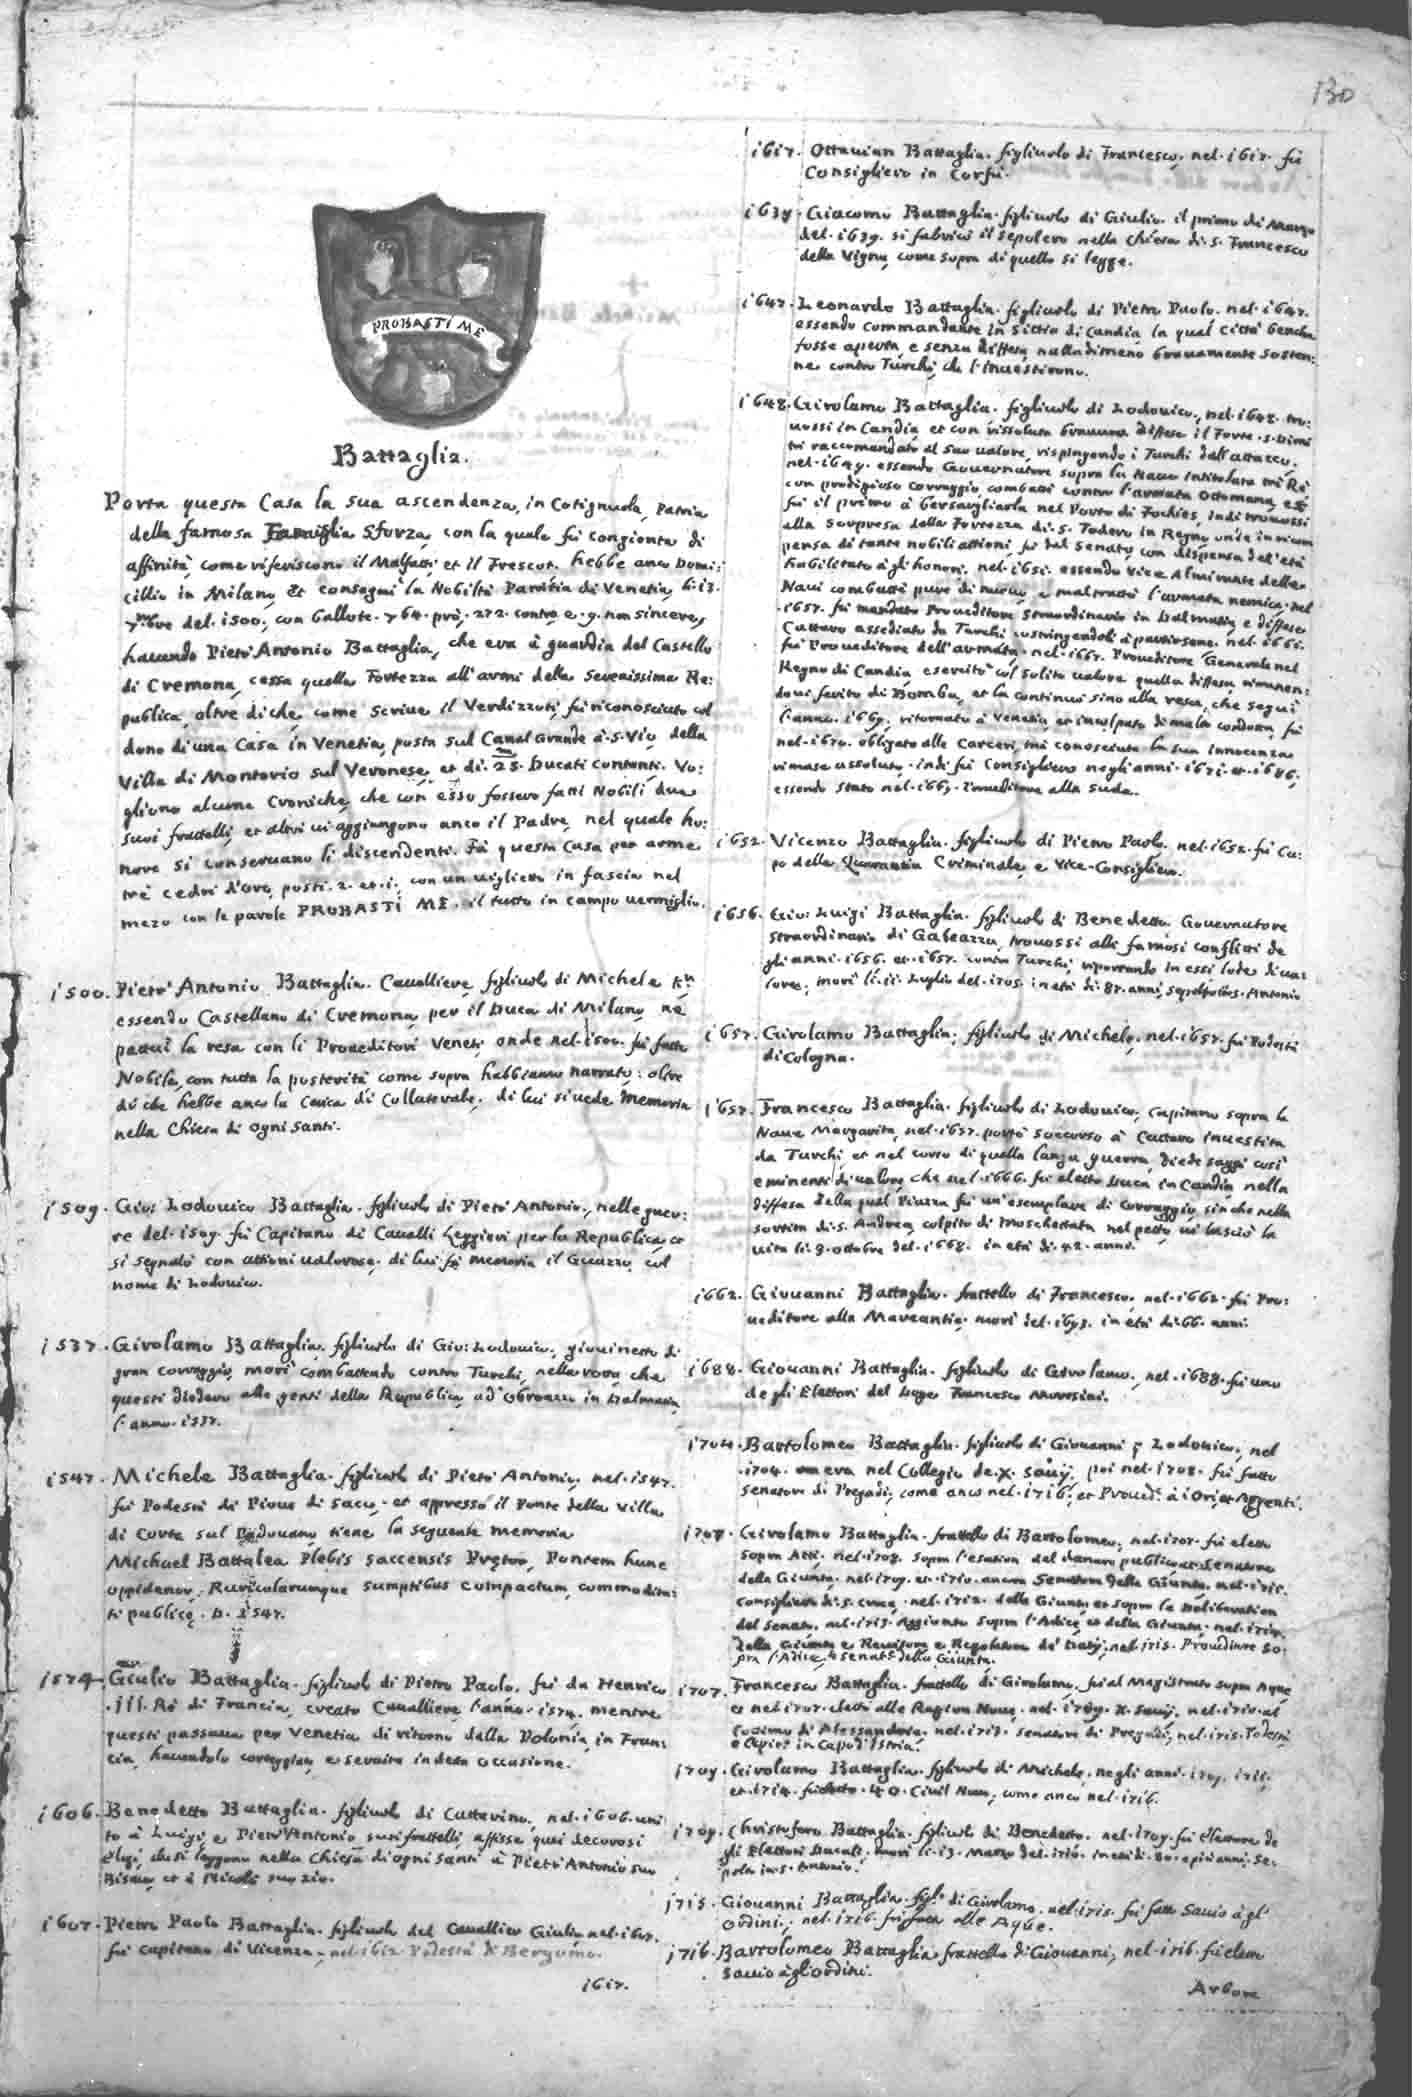 130
PROBASTI ME
Battaglia.
Porta questa Casa la sua ascendenza, in Cotignuola, Patria
della famosa Famiglia Sforza, con la quale fù congionta di
affinità, come riferiscono il Malfatti, et il Frescot. hebbe anco Domi:
cilio in Milano, et conseguì la Nobiltà Patritia di Venetia, li. 13.
del. 1500., con ballote. 764. prò, 272. contra, e. 9. non sincere,
hauendo Pietr'Antonio Battaglia, che era à guardia del Castello
di Cremona, cessa quella Fortezza all'armi della Serenissima Re:
publica, oltre di che, come scriue il Verdizzoti, fù riconosciuto col
dono di una Casa in Venetia, posta sul Canal Grande à. S. Vio, della
Villa di Montorio sul Veronese, et di. 25. Ducati contanti. Vo:
gliono alcune Croniche, che con esso fossero fatti Nobili due
suoi fratelli, et altri ui aggiungono anco il Padre, nel quale ho:
nore si conseruano li discendenti. Fà questa Casa per arme
trè cedri d'oro, posti. 2. et. 1., con un uiglietto in fascia nel
mezo con le parole PROBASTI ME. il tutto in campo uermiglio.
1500. Pietr'Antonio Battaglia. Caualliere, figliuolo di Michele
essendo Castellano di Cremona, per il Duca di Milano, ne
pattuì la resa con li Proueditori Veneti, onde nel. 1500. fù fatto
Nobile, con tutta la posterità come sopra habbiamo narrato: oltre
di che hebbe anco la Carica di Collaterale. di lui si uede memoria
nella Chiesa di Ogni Santi.
1509. Gio: Lodouico Battaglia. figliuolo di Pietr'Antonio, nelle guer:
re del. 1509. fù Capitano di Caualli Leggieri per la Republica, et
si segnalò con attioni ualorose. di lui fà memoria il Guazzo, col
nome di Lodouico.
1537. Girolamo Battaglia. figliuolo di Gio: Lodouico, giouinetto di
gran coraggio, morì combattendo contro Turchi, nella rota, che
questi diedero alle genti della Republica, ad Obroazzo in Dalmatia,
l'anno. 1537.
1547. Michele Battaglia. figliuolo di Pietr'Antonio, nel. 1547.
fù Podestà di Pioue di Sacco. et appresso il Ponte della Villa
di Corte sul Padouano, tiene la seguente memoria
Michael Battalea Plebis Saccensis Prętor, Pontem hunc
oppidanor. Ruricolarumque sumptibus compactum, commodita:
ti publicę. D. 1547.
1574. Giulio Battaglia. figliuolo di Pietro Paolo. fù da Henrico
.III. Rè di Francia, creato Caualliere l'anno. 1574. mentre
questi passaua per Venetia di ritorno dalla Polonia, in Fran:
cia, hauendolo corteggiato, e seruito in detta occasione.
1606. Benedetto Battaglia. figliuolo di Cattarino, nel. 1606. uni:
to à Luigi, e Pietr'Antonio suoi fratelli, affisse quei decorosi
Elogi, che si leggono nella Chiesa di ogni Santi à Pietr'Antonio suo
Bisauo, et à Nicolò suo zio.
1607. Pietro Paolo Battaglia. figliuolo del Caualliere Giulio, nel. 1607.
fù Capitano di Vicenza, nel. 1612. Podestà di Bergamo.
1617.
1617. Ottauian Battaglia. figliuolo di Francesco, nel. 1617. fù
Consigliero in Corfù.
1639. Giacomo Battaglia. figliuolo di Giulio. il primo di Marzo
del. 1639. si fabricò il sepolcro nella chiesa di. S. Francesco
della Vigna, come sopra di quello si legge.
1647. Leonardo Battaglia. figliuolo di Pietro Paolo. nel. 1647.
essendo Commandante in Sittia di Candia, la qual Città benche
fosse aperta, e senza diffesa, nulladimeno brauamente sosten:
ne contro Turchi, che l'inuestirono.
1648. Girolamo Battaglia. figliuolo di Lodouico, nel. 1648. tro:
uossi in Candia, et con rissoluta brauura diffese il Forte. S. Dimi
tri raccomandato al suo ualore, rispingendo i Turchi dall'attacco.
nel. 1649. essendo Gouernatore sopra la Naue intitolata trè Rè
con prodigioso corraggio, combattè contro l'armata Ottomana, et
fù il primo à bersagliarla nel Porto di Fochies, indi trouossi
alla sorpresa della Fortezza di. S. Todero in Regno, onde in ricom
pensa di tante nobili attioni, fù dal Senato, con dispensa dell'età
habilitato à gli honori. nel. 1651. essendo Vice Almirante delle
Naui combattè pure di nuouo, e maltrattò l'armata nemica. nel
.1657. fù mandato Proueditore straordinario in Dalmatia, e diffese
Cattaro assediato da Turchi costringendoli à partirsene. nel. 1666.
fù Proueditore dell'armata. nel. 1667. Proueditore Generale nel
Regno di Candia, esercitò col solito ualore quella diffesa, rimanen:
doui ferito di Bomba, et la continuò sino alla resa, che seguì
l'anno. 1669. ritornato à Venetia, et incolpato di mala condotta, fù
nel. 1670. obligato alle Carceri, mà conosciuta la sua innocenza
rimase assoluto. indi fù Consigliero negl'anni. 1671. et. 1686.
essendo stato nel. 1665. Proueditore alla Suda.
1652. Vicenzo Battaglia. figliuolo di Pietro Paolo. nel. 1652. fù Ca:
po della Quarantia Criminale, e Vice-Consigliero.
1656. Gio: Luigi Battaglia. figliuolo di Benedetto. Gouernatore
straordinario di Galeazza, trouossi alli famosi conflitti de
gli anni. 1656. et. 1657. contro Turchi, riportando in essi lode di ua:
lore, morì li. 11. Luglio del. 1705. in età di. 87. anni, sepolto in S. Antonio
1657. Girolamo Battaglia. figliuolo di Michele, nel. 1657. fù Podestà
di Cologna.
1657. Francesco Battaglia. figliuolo di Lodouico, Capitano sopra la
Naue Margarita, nel. 1657. portò soccorso à Cattaro inuestita
da Turchi, et nel corso di quella lunga guerra, diede saggi così
eminenti di ualore, che nel. 1666. fù eletto Duca in Candia, nella
diffesa della qual Piazza fù un'esemplare di corraggio, sin che nella
sortita di. S. Andrea, colpito di Moschettata nel petto, ui lasciò la
uita li. 9. ottobre del. 1668. in età di. 42. anni.
1662. Giouanni Battaglia. fratello di Francesco, nel. 1662. fù Pro:
ueditore alla Mercantia. morì del. 1693. in età di. 66. anni.
1688. Giouanni Battaglia. figliuolo di Girolamo, nel. 1688. fù uno
de gli Elettori del Doge Francesco Moresini.
1704. Bartolomeo Battaglia. figliuolo di Giouanni q. Lodouico, nel
.1704. era nel Collegio de. X. Sauij, poi nel. 1708. fù fatto
Senatore di Pregadi, come anco nel. 1716., et Proued.r à i Ori, et Argenti.
1707. Girolamo Battaglia. fratello di Bartolomeo, nel. 1707. fù eletto
sopra Atti. nel. 1708. sopra l'esation del danaro publico, et Senatore
della Giunta. nel. 1709. et. 1710. ancora Senatore della Giunta. nel. 1711.
Consigliero di. S. Croce. nel. 1712. della Giunta, et sopra la Deliberation
del Senato. nel. 1713. Aggiunto sopra l'Adice, et della Giunta. nel. 1714.
della Giunta, e Reuisore, e Regolatore de' Datij. nel. 1715. Proueditore So:
pra l'Adice, e Senat.r della Giunta.
1707. Francesco Battaglia. fratello di Girolamo, fù al Magistrato sopra Aque
et nel. 1707. eletto alle Rason Noue. nel. 1709. X. Sauij. nel. 1710. al
Cottimo di Alessandria. nel. 1713. Senatore di Pregadi, nel. 1715. Podestà,
e Capit.o in Capo d'Istria.
1709. Girolamo Battaglia. figliuolo di Michele, negli anni. 1709. 1711.
et. 1714. fù eletto. 40. Ciuil Nouo, come anco nel. 1716.
1709. Christoforo Battaglia. figliuolo di Benedetto. nel. 1709. fù Elettore de
gli Elettori Ducali. morì li. 13. Marzo del. 1716. in età di. 80. e più anni, se:
polto in. S. Antonio.
1715. Giouanni Battaglia. figl.o di Girolamo. nel. 1715. fù fatto Sauio à gl'
Ordini, nel. 1716. fù fatto alle Aque.
1716. Bartolomeo Battaglia fratello di Giouanni, nel. 1716. fù eletto
Sauio à gli ordini.
Arbore